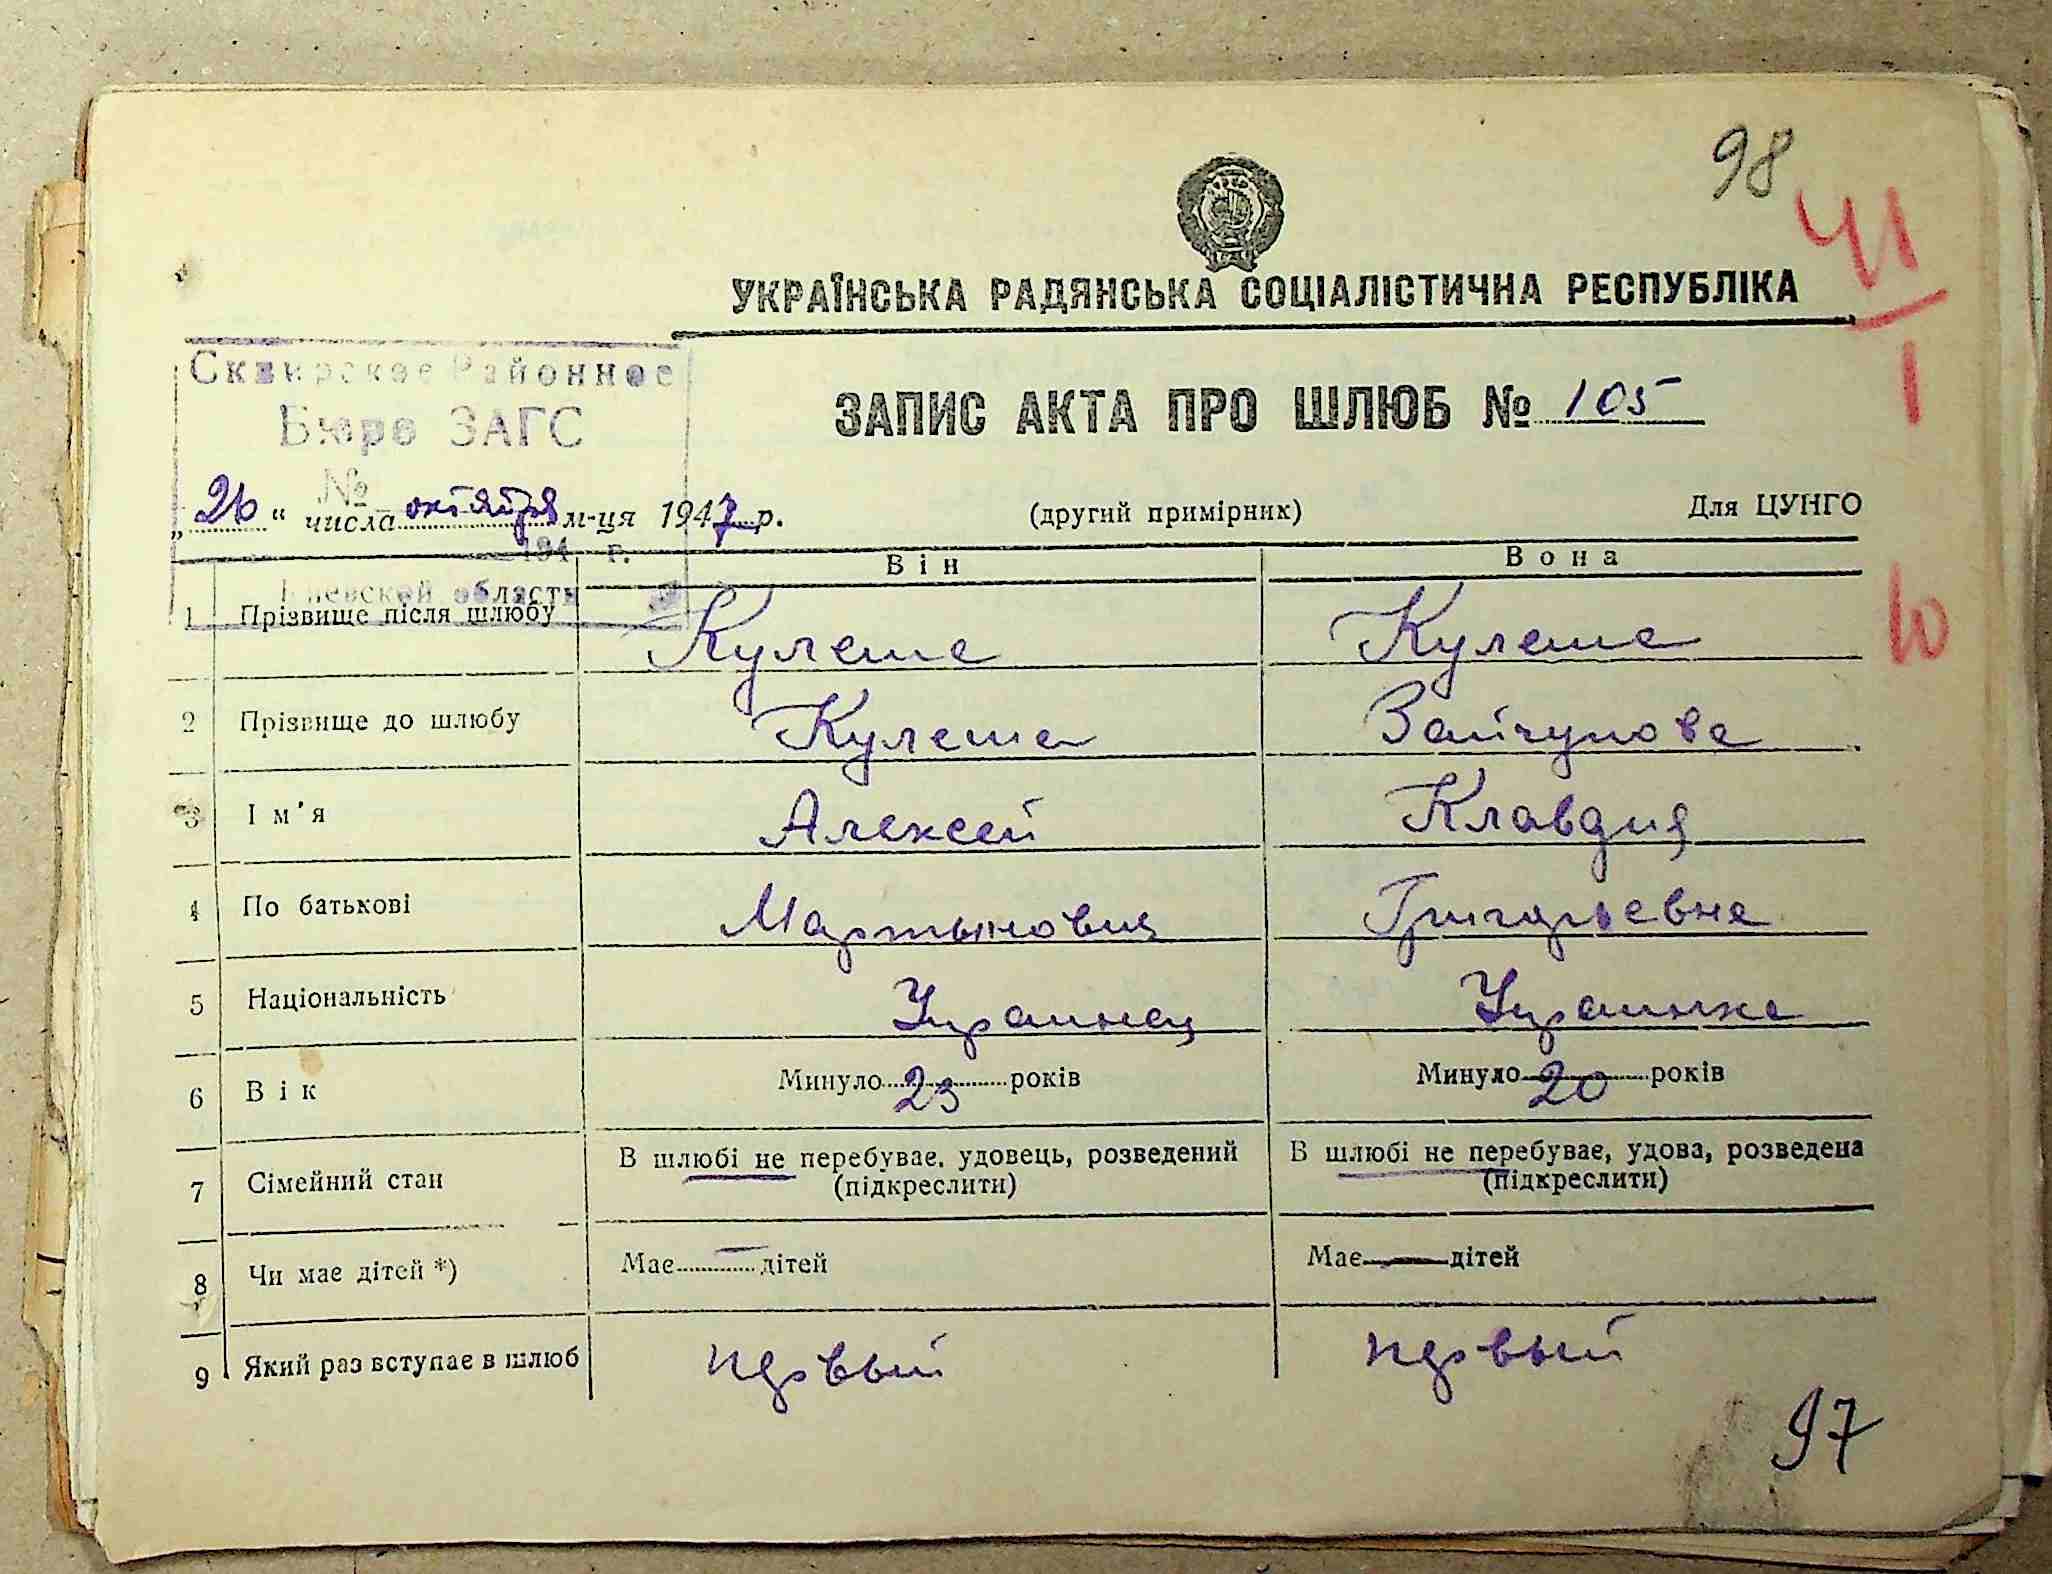 98
41
УКРАЇНСЬКА РАДЯНСЬКА СОЦІАЛІСТИЧНА РЕСПУБЛІКА
1
Сквирское Районное
Бюро ЗАГС
№
194 г.
Киевской области
ЗАПИС АКТА ПРО ШЛЮБ № 105
„26“ числа октября м-ця 1947 р. (другий примірник) Для ЦУНГО
Він Вона
10
1 Прізвище після шлюбу Кулеша Кулеша
2 Прізвище до шлюбу Кулеша Зайчукова
3 Ім'я Алексей Клавдия
4 По батькові Мартынович Григорьевна
5 Національність Украинец Украинка
6 Вік Минуло 23 років Минуло 20 років
7 Сімейний стан В шлюбі не перебуває, удовець, розведений В шлюбі не перебуває, удова, розведена
(підкреслити) (підкреслити)
8 Чи має дітей *) Має — дітей Має — дітей
9 Який раз вступає в шлюб первый первый
97